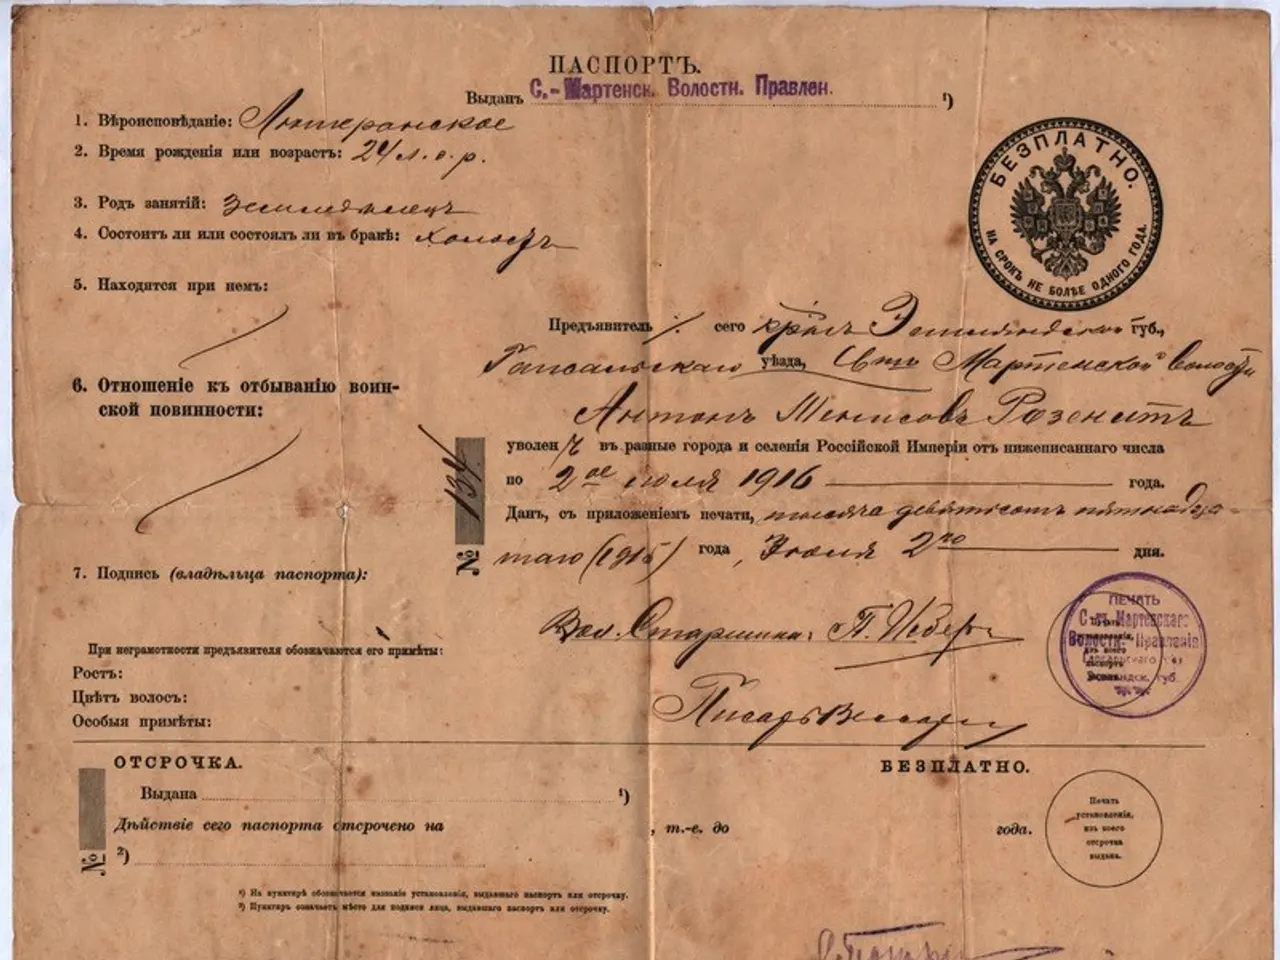 ПАСПОРТЪ.
Выданъ С.-Мартенск. Волостн. Правлен. ¹)
1. Вѣроисповѣданіе: Лютеранское
2. Время рожденія или возрастъ: 24 л. о. р.
3. Родъ занятій: Земледѣлецъ
4. Состоитъ ли или состоялъ ли въ бракѣ: холостъ
5. Находятся при немъ:
6. Отношеніе къ отбыванію воин-
ской повинности:
7. Подпись (владѣльца паспорта):
При неграмотности предъявителя обозначаются его примѣты:
Ростъ:
Цвѣтъ волосъ:
Особыя примѣты:
БЕЗПЛАТНО.
НА СРОКЪ НЕ БОЛѢЕ ОДНОГО ГОДА.
Предъявитель сего Эстляндской губ.,
Гапсальскаго уѣзда, Мартенской волости
Антонъ Розенитъ
уволенъ въ разные города и селенія Россійской Имперіи отъ нижеписаннаго числа
по 2ое іюля 1916 года.
Данъ, съ приложеніемъ печати, тысяча девятьсотъ пятнадца-
таго (1915) года, Іюля 2го дня.
№ 134
Вол. Старшина: П. Веберъ
Писарь
ПЕЧАТЬ
С-тъ Мартенскаго
Волостн. Правленія
губ.
ОТСРОЧКА.
БЕЗПЛАТНО.
Выдана ¹)
Дѣйствіе сего паспорта отсрочено на , т.-е. до года.
№
²)
Печать
установленія,
изъ коего
отсрочка
выдана.
¹) На пунктирѣ обозначается названіе установленія, выдавшаго паспортъ или отсрочку.
²) Пунктиръ означаетъ мѣсто для подписи лица, выдавшаго паспортъ или отсрочку.